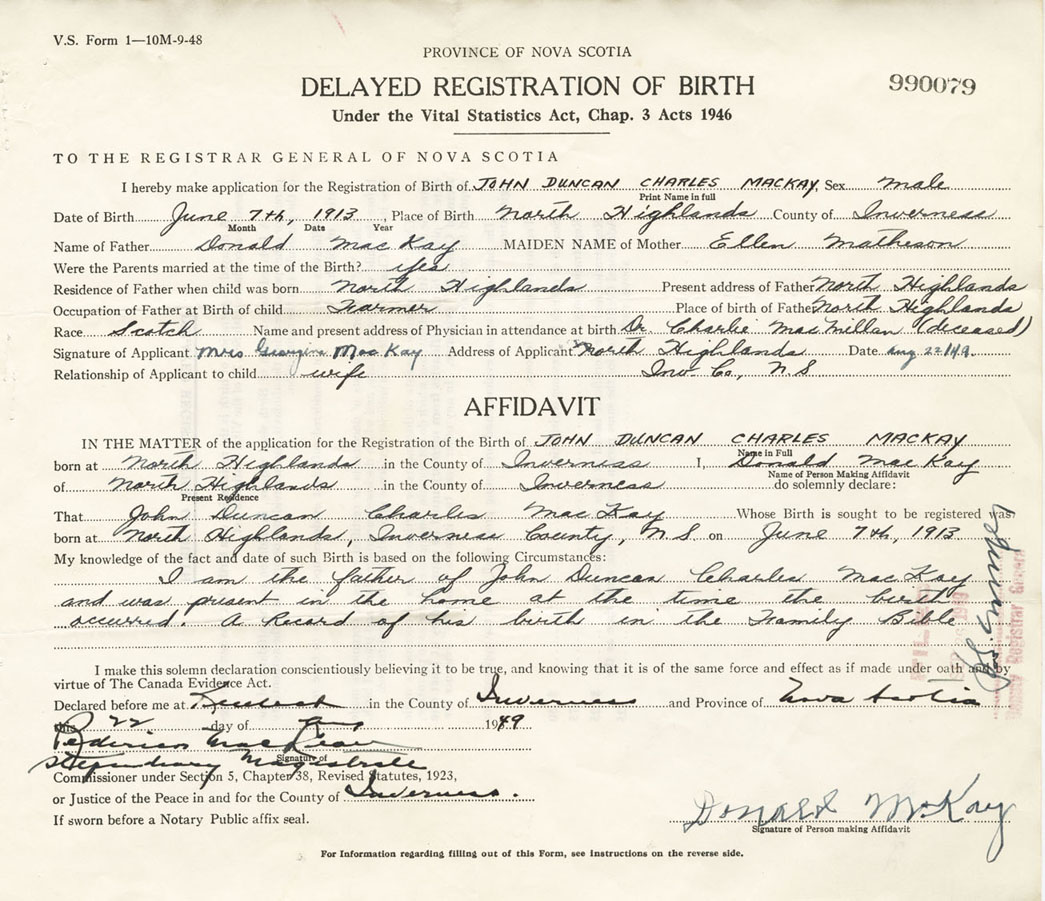 V.S. Form 1—10M-9-48
PROVINCE OF NOVA SCOTIA
DELAYED REGISTRATION OF BIRTH
990079
Under the Vital Statistics Act, Chap. 3 Acts 1946
TO THE REGISTRAR GENERAL OF NOVA SCOTIA
I hereby make application for the Registration of Birth of JOHN DUNCAN CHARLES MACKAY Sex male
Print Name in full
Date of Birth June 7th, 1913, Place of Birth North Highlands County of Inverness
Month Date Year
Name of Father Donald MacKay MAIDEN NAME of Mother Ellen Matheson
Were the Parents married at the time of the Birth? yes
Residence of Father when child was born North Highlands Present address of Father North Highlands
Occupation of Father at Birth of child Farmer Place of birth of Father North Highlands
Race Scotch Name and present address of Physician in attendance at birth Dr. Charlie MacMillan (deceased)
Signature of Applicant Mrs Georgina MacKay Address of Applicant North Highlands Date Aug 22/49.
Relationship of Applicant to child wife Inv. Co., N S
AFFIDAVIT
IN THE MATTER of the application for the Registration of the Birth of JOHN DUNCAN CHARLES MACKAY
Name in Full
born at North Highlands in the County of Inverness I, Donald MacKay
Name of Person Making Affidavit
of North Highlands in the County of Inverness do solemnly declare:
Present Residence
That John Duncan Charles MacKay Whose Birth is sought to be registered was
born at North Highlands, Inverness County, N S on June 7th, 1913
My knowledge of the fact and date of such Birth is based on the following Circumstances:
I am the father of John Duncan Charles MacKay
and was present in the home at the time the birth
occurred. A Record of his birth in the Family Bible
I make this solemn declaration conscientiously believing it to be true, and knowing that it is of the same force and effect as if made under oath and by
virtue of The Canada Evidence Act.
Declared before me at in the County of Inverness and Province of Nova Scotia
this 22 day of Aug 1949
Signature of
Stipendiary Magistrate
Commissioner under Section 5, Chapter 38, Revised Statutes, 1923,
or Justice of the Peace in and for the County of Inverness.
If sworn before a Notary Public affix seal.
Donald McKay
Signature of Person making Affidavit
For Information regarding filling out of this Form, see instructions on the reverse side.
Registrar General